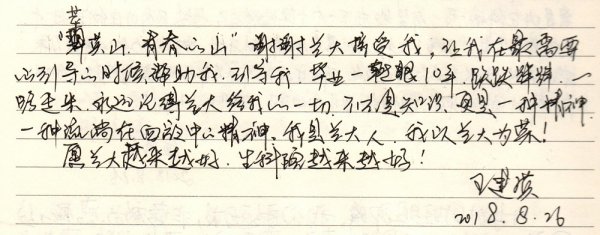 萃
"萃英山 青春的山" 谢谢兰大接受我,让我在最需要
的引导的时候帮助我、引导我。毕业一转眼10年,跌跌绊绊,一
路走来,永远记得兰大给我的一切,不仅是知识,更是一种精神,
一种流淌在血液中的精神。我是兰大人,我以兰大为荣!
愿兰大越来越好,生科院越来越好!
王建
2018.8.26